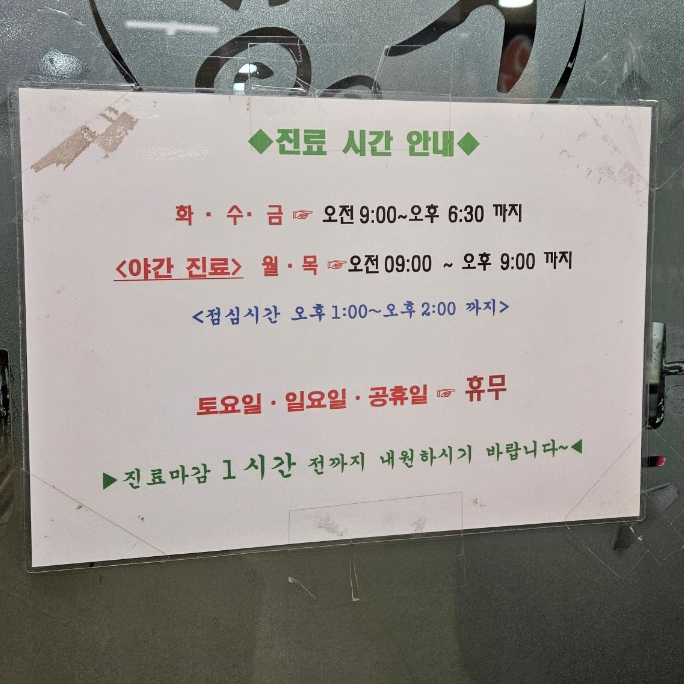 ◆진료 시간 안내◆
화 · 수 · 금 ☞ 오전 9:00~오후 6:30 까지
<야간 진료> 월 · 목 ☞오전 09:00 ~ 오후 9:00 까지
<점심시간 오후 1:00~오후 2:00 까지>
토요일 · 일요일 · 공휴일 ☞ 휴무
▶진료마감 1시간 전까지 내원하시기 바랍니다~◀